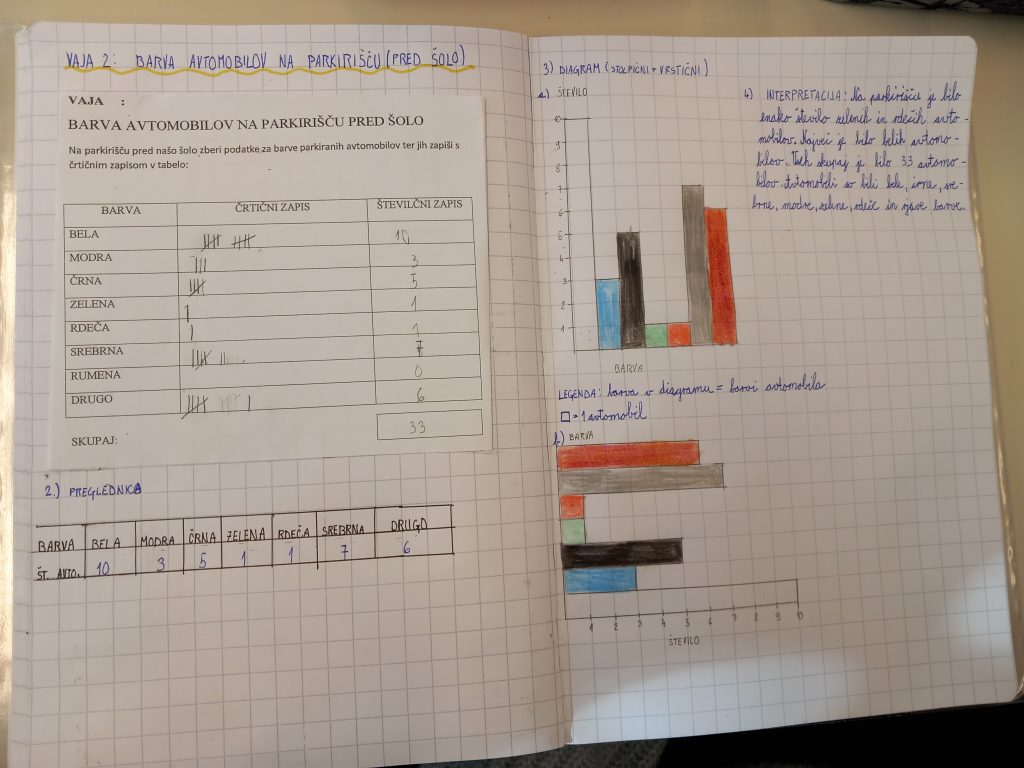 VAJA 2: BARVA AVTOMOBILOV NA PARKIRIŠČU (PRED ŠOLO)
VAJA :
BARVA AVTOMOBILOV NA PARKIRIŠČU PRED ŠOLO
Na parkirišču pred našo šolo zberi podatke za barve parkiranih avtomobilov ter jih zapiši s
črtičnim zapisom v tabelo:
BARVA ČRTIČNI ZAPIS ŠTEVILČNI ZAPIS
BELA 10
MODRA 3
ČRNA 5
ZELENA 1
RDEČA 1
SREBRNA 7
RUMENA 0
DRUGO 6
SKUPAJ: 33
2.) PREGLEDNICA
BARVA BELA MODRA ČRNA ZELENA RDEČA SREBRNA DRUGO
ŠT. AVTO. 10 3 5 1 1 7 6
3) DIAGRAM (STOLPIČNI + VRSTIČNI)
a) ŠTEVILO
10
9
8
7
6
5
4
3
2
1
BARVA
LEGENDA: barva v diagramu = barvi avtomobila
□ = 1 avtomobil
b) BARVA
1 2 3 4 5 6 7 8 9 10
ŠTEVILO
4) INTERPRETACIJA: Na parkirišču je bilo
enako število zelenih in rdečih avto-
mobilov. Največ je bilo belih avtomo-
bilov. Vseh skupaj je bilo 33 avtomo-
bilov. Avtomobili so bili bele, črne, sre-
brne, modre, zelene, rdeče in rjave barve.